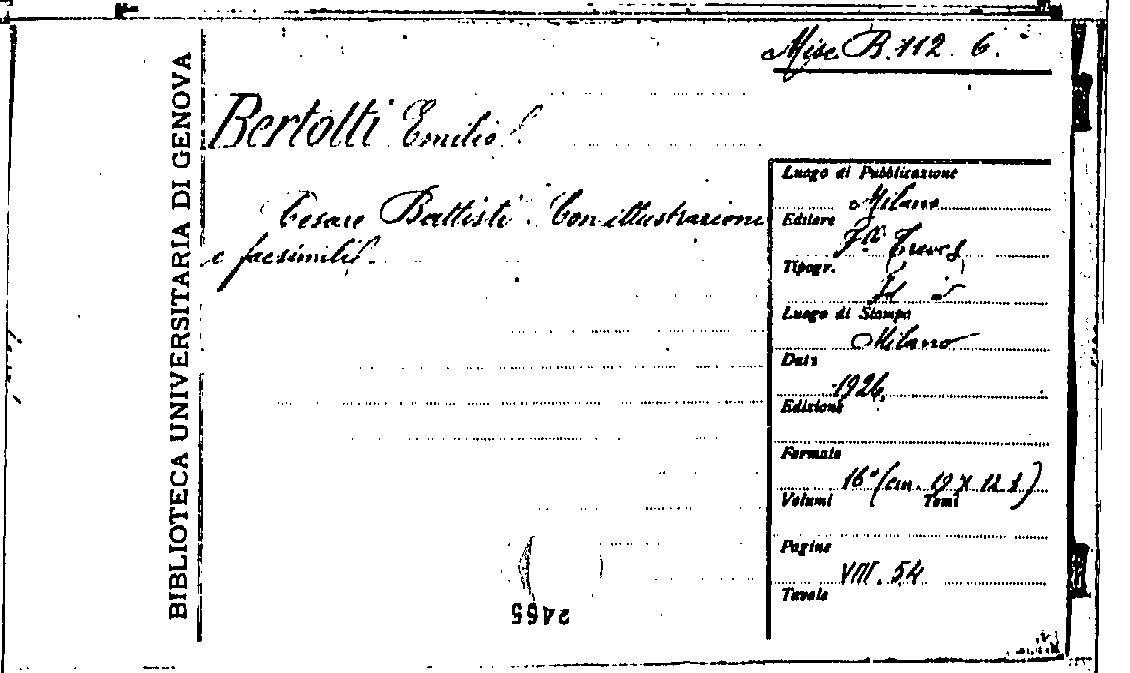 BIBLIOTECA UNIVERSITARIA DI GENOVA
Misc. B. 112. 6.
Bertotti Emilio.
Cesare Battisti. Con illustrazioni
e facsimili.
Luogo di Pubblicazione
Milano
Editore
F.lli Treves
Tipogr.
Id
Luogo di Stampa
Milano
Data
1926.
Edizione
Formato
16° (cm. 19 X 12
Volumi Tomi
Pagine
VIII. 54
Tavole
2465